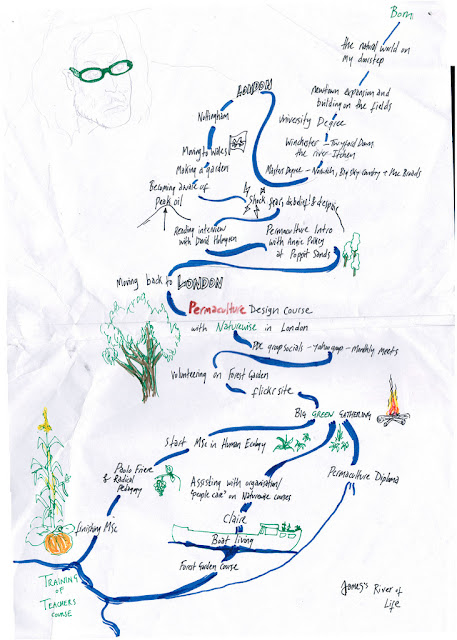 Born
the natural world on
my doorstep
newtown expansion and
building on the fields
University Degree
Winchester - Twyford Down
the river Itchen
Masters Degree - Norwich, Big Sky Country + The Broads
LONDON
Nottingham
Moving to Wales
Making a garden
Becoming aware of
peak oil
Shock, fear, disbelief! & despair
Reading interview
with David Holmgren
Permaculture Intro
with Angie Polkey
at Poppit Sands
Moving back to LONDON
Permaculture Design Course
with Naturewise in London
PDC group socials - yahoo group - Monthly Meets
Volunteering on Forest Garden
flickr site
BIG GREEN GATHERING
Start MSc in Human Ecology
Paulo Friere
& Radical
Pedagogy
Assisting with organisation/
'people care' on Naturewise courses
Permaculture Diploma
finishing MSc
Claire
Boat living
Forest Garden Course
TRAINING
OF
TEACHERS
COURSE
James's River of
Life